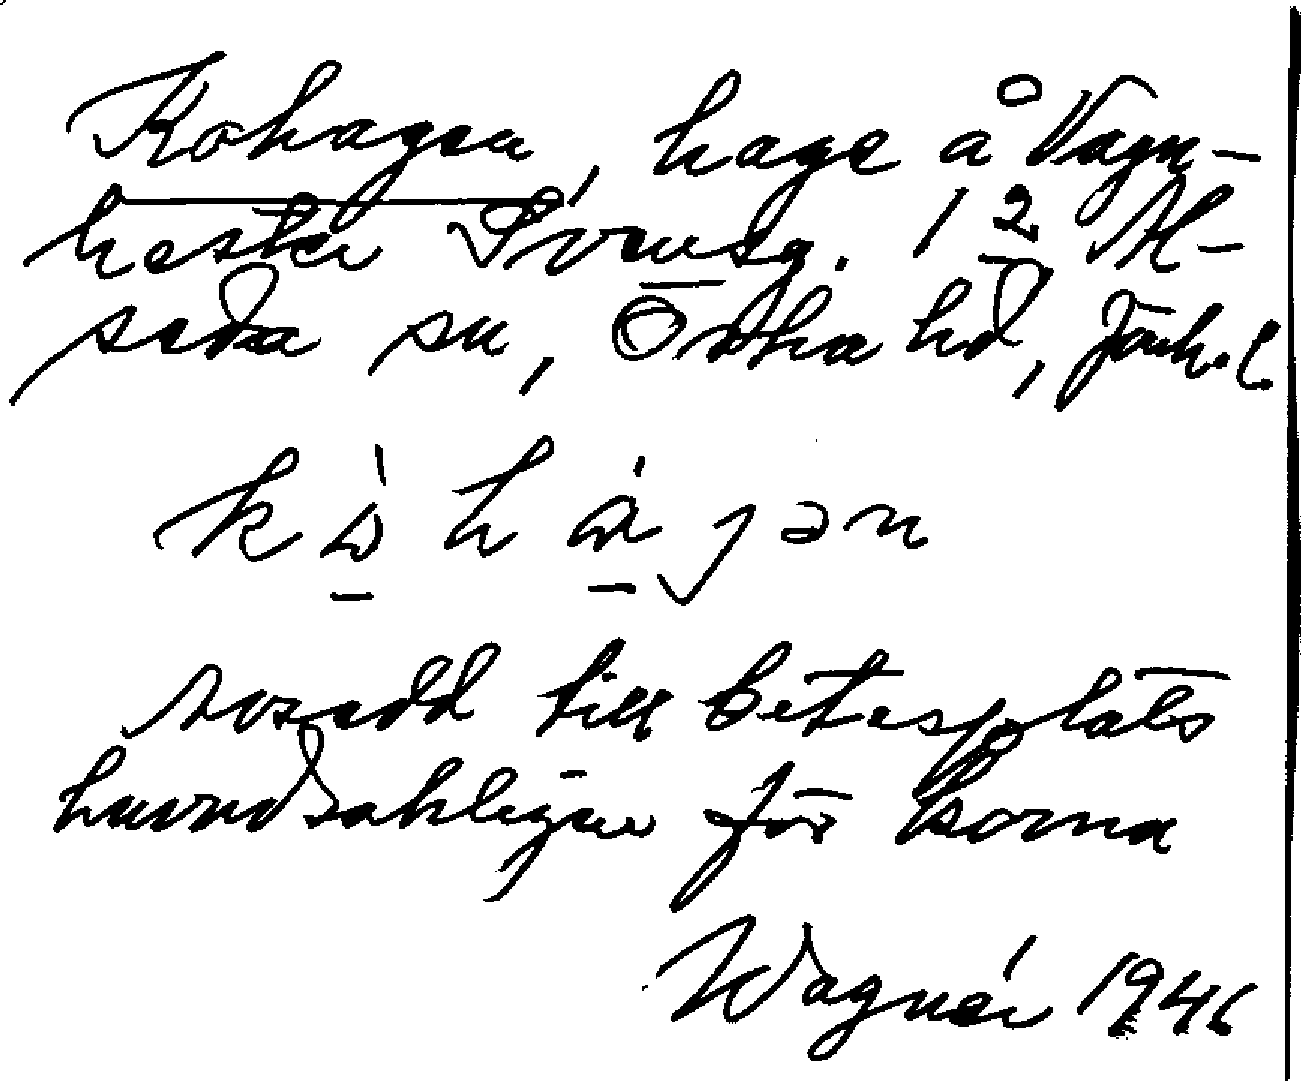 Kohagen, hage å Vagn-
hester Svensg. 12 Al-
seda sn, Östra hd, Jönk. l.
avsedd till betesplats
huvudsakligen för korna
Wagnér 1946